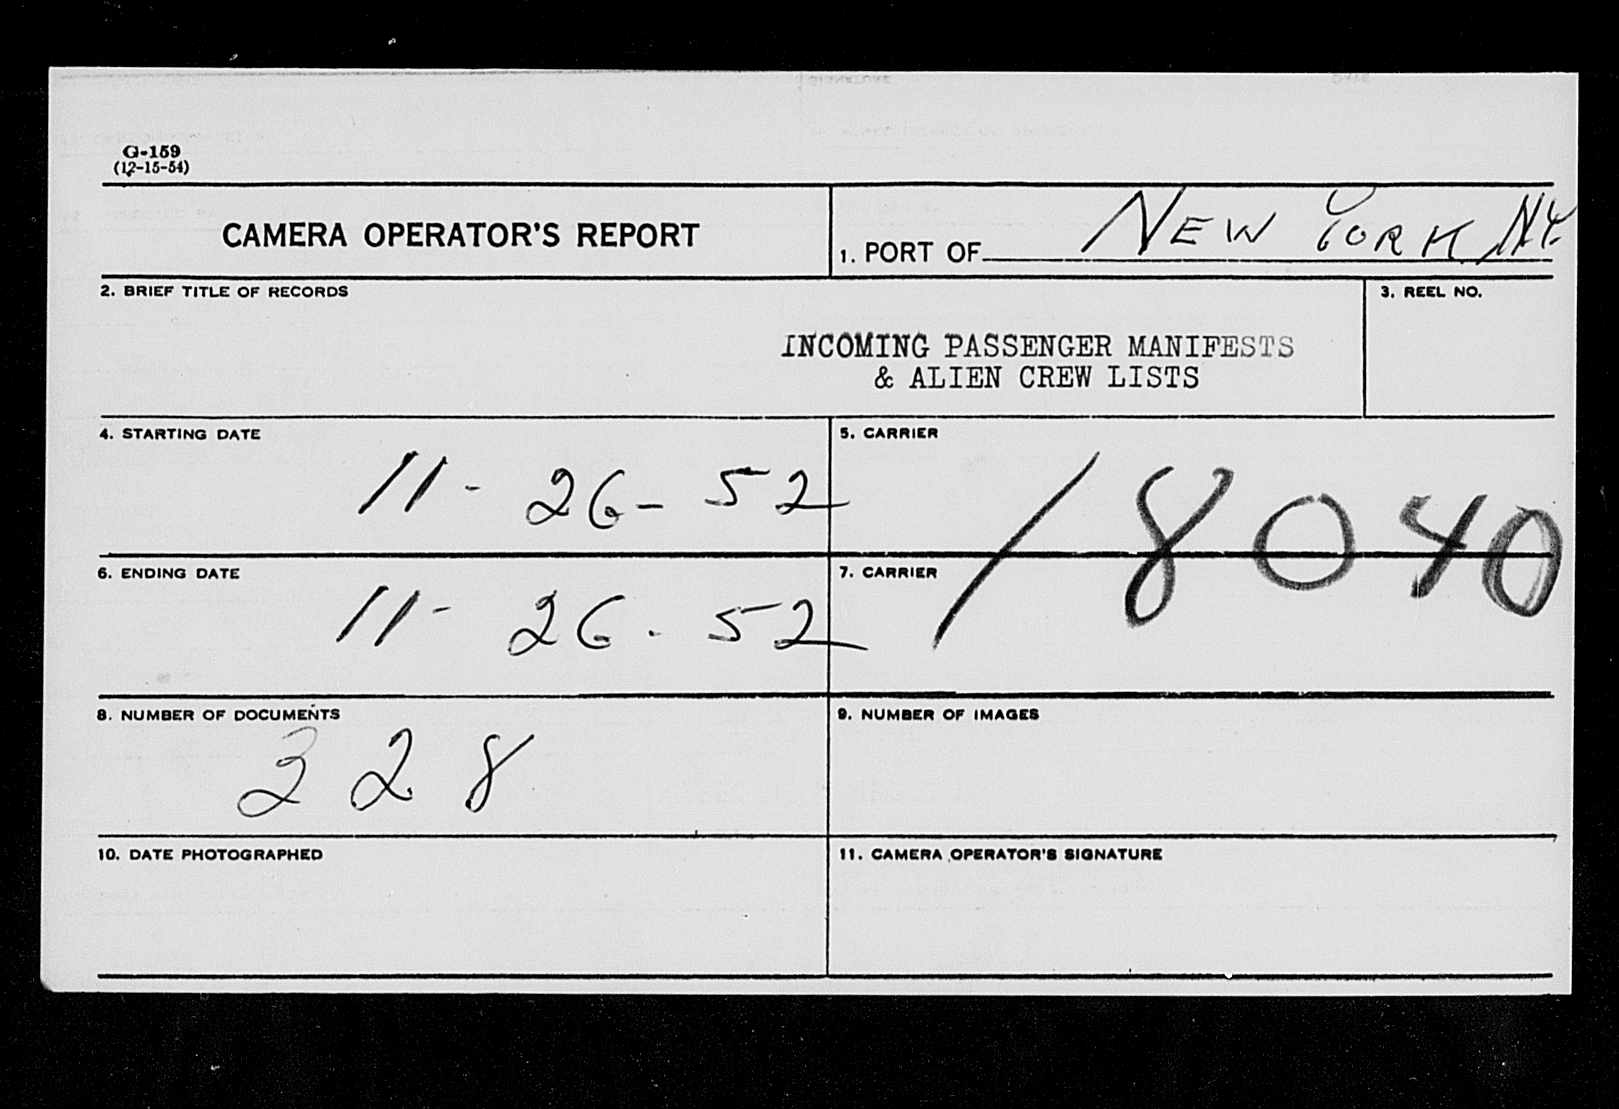 G-159
(12-15-54)
CAMERA OPERATOR'S REPORT
1. PORT OF NEW YORK N.Y.
2. BRIEF TITLE OF RECORDS
INCOMING PASSENGER MANIFESTS
& ALIEN CREW LISTS
3. REEL NO.
4. STARTING DATE
11-26-52
5. CARRIER
18040
6. ENDING DATE
11-26-52
7. CARRIER
8. NUMBER OF DOCUMENTS
328
9. NUMBER OF IMAGES
10. DATE PHOTOGRAPHED
11. CAMERA OPERATOR'S SIGNATURE